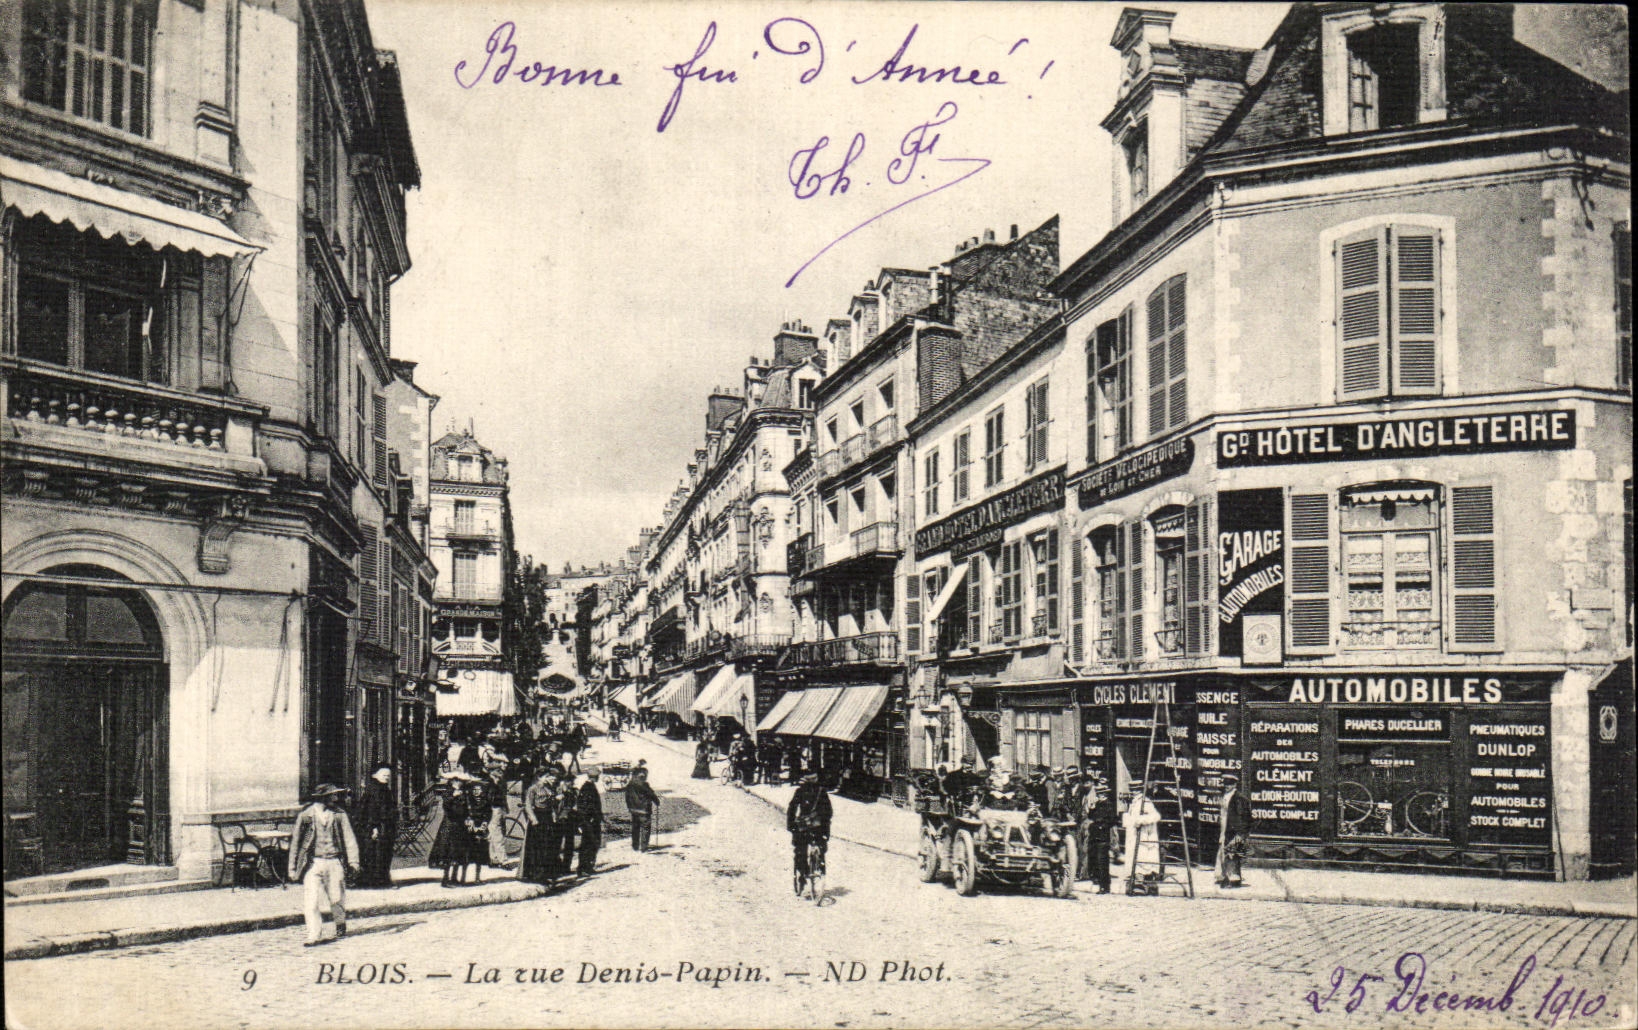 Bonne fin d'Année!
Th. F.
Gᴰ HÔTEL D'ANGLETERRE
SOCIÉTÉ VÉLOCIPÉDIQUE
DE LOIR ET CHER
GRAND HOTEL D'ANGLETERRE
GARAGE
D'AUTOMOBILES
GRANDE MAISON
CYCLES CLÉMENT
ESSENCE
HUILE
GRAISSE
POUR
AUTOMOBILES
AUTOMOBILES
RÉPARATIONS
DES
AUTOMOBILES
CLÉMENT
DE DION-BOUTON
STOCK COMPLET
PHARES DUCELLIER
TELEPHONE
PNEUMATIQUES
DUNLOP
POUR
AUTOMOBILES
STOCK COMPLET
CYCLES
CLÉMENT
ATELIERS
9 BLOIS. — La rue Denis-Papin. — ND Phot.
25 Décemb. 1910.